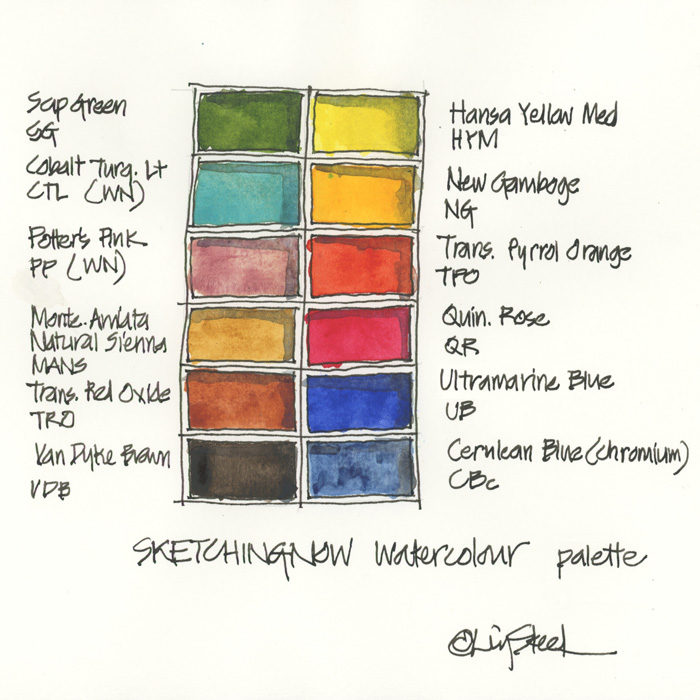 Sap Green
SG
Cobalt Turq. Lt
CTL (WN)
Potter's Pink
PP (WN)
Monte. Amiata
Natural Sienna
MANS
Trans. Red Oxide
TRO
Van Dyke Brown
VDB
Hansa Yellow Med
HYM
New Gamboge
NG
Trans. Pyrrol Orange
TPO
Quin. Rose
QR
Ultramarine Blue
UB
Cerulean Blue (chromium)
CBc
SKETCHINGNOW watercolour palette
©Liz Steel